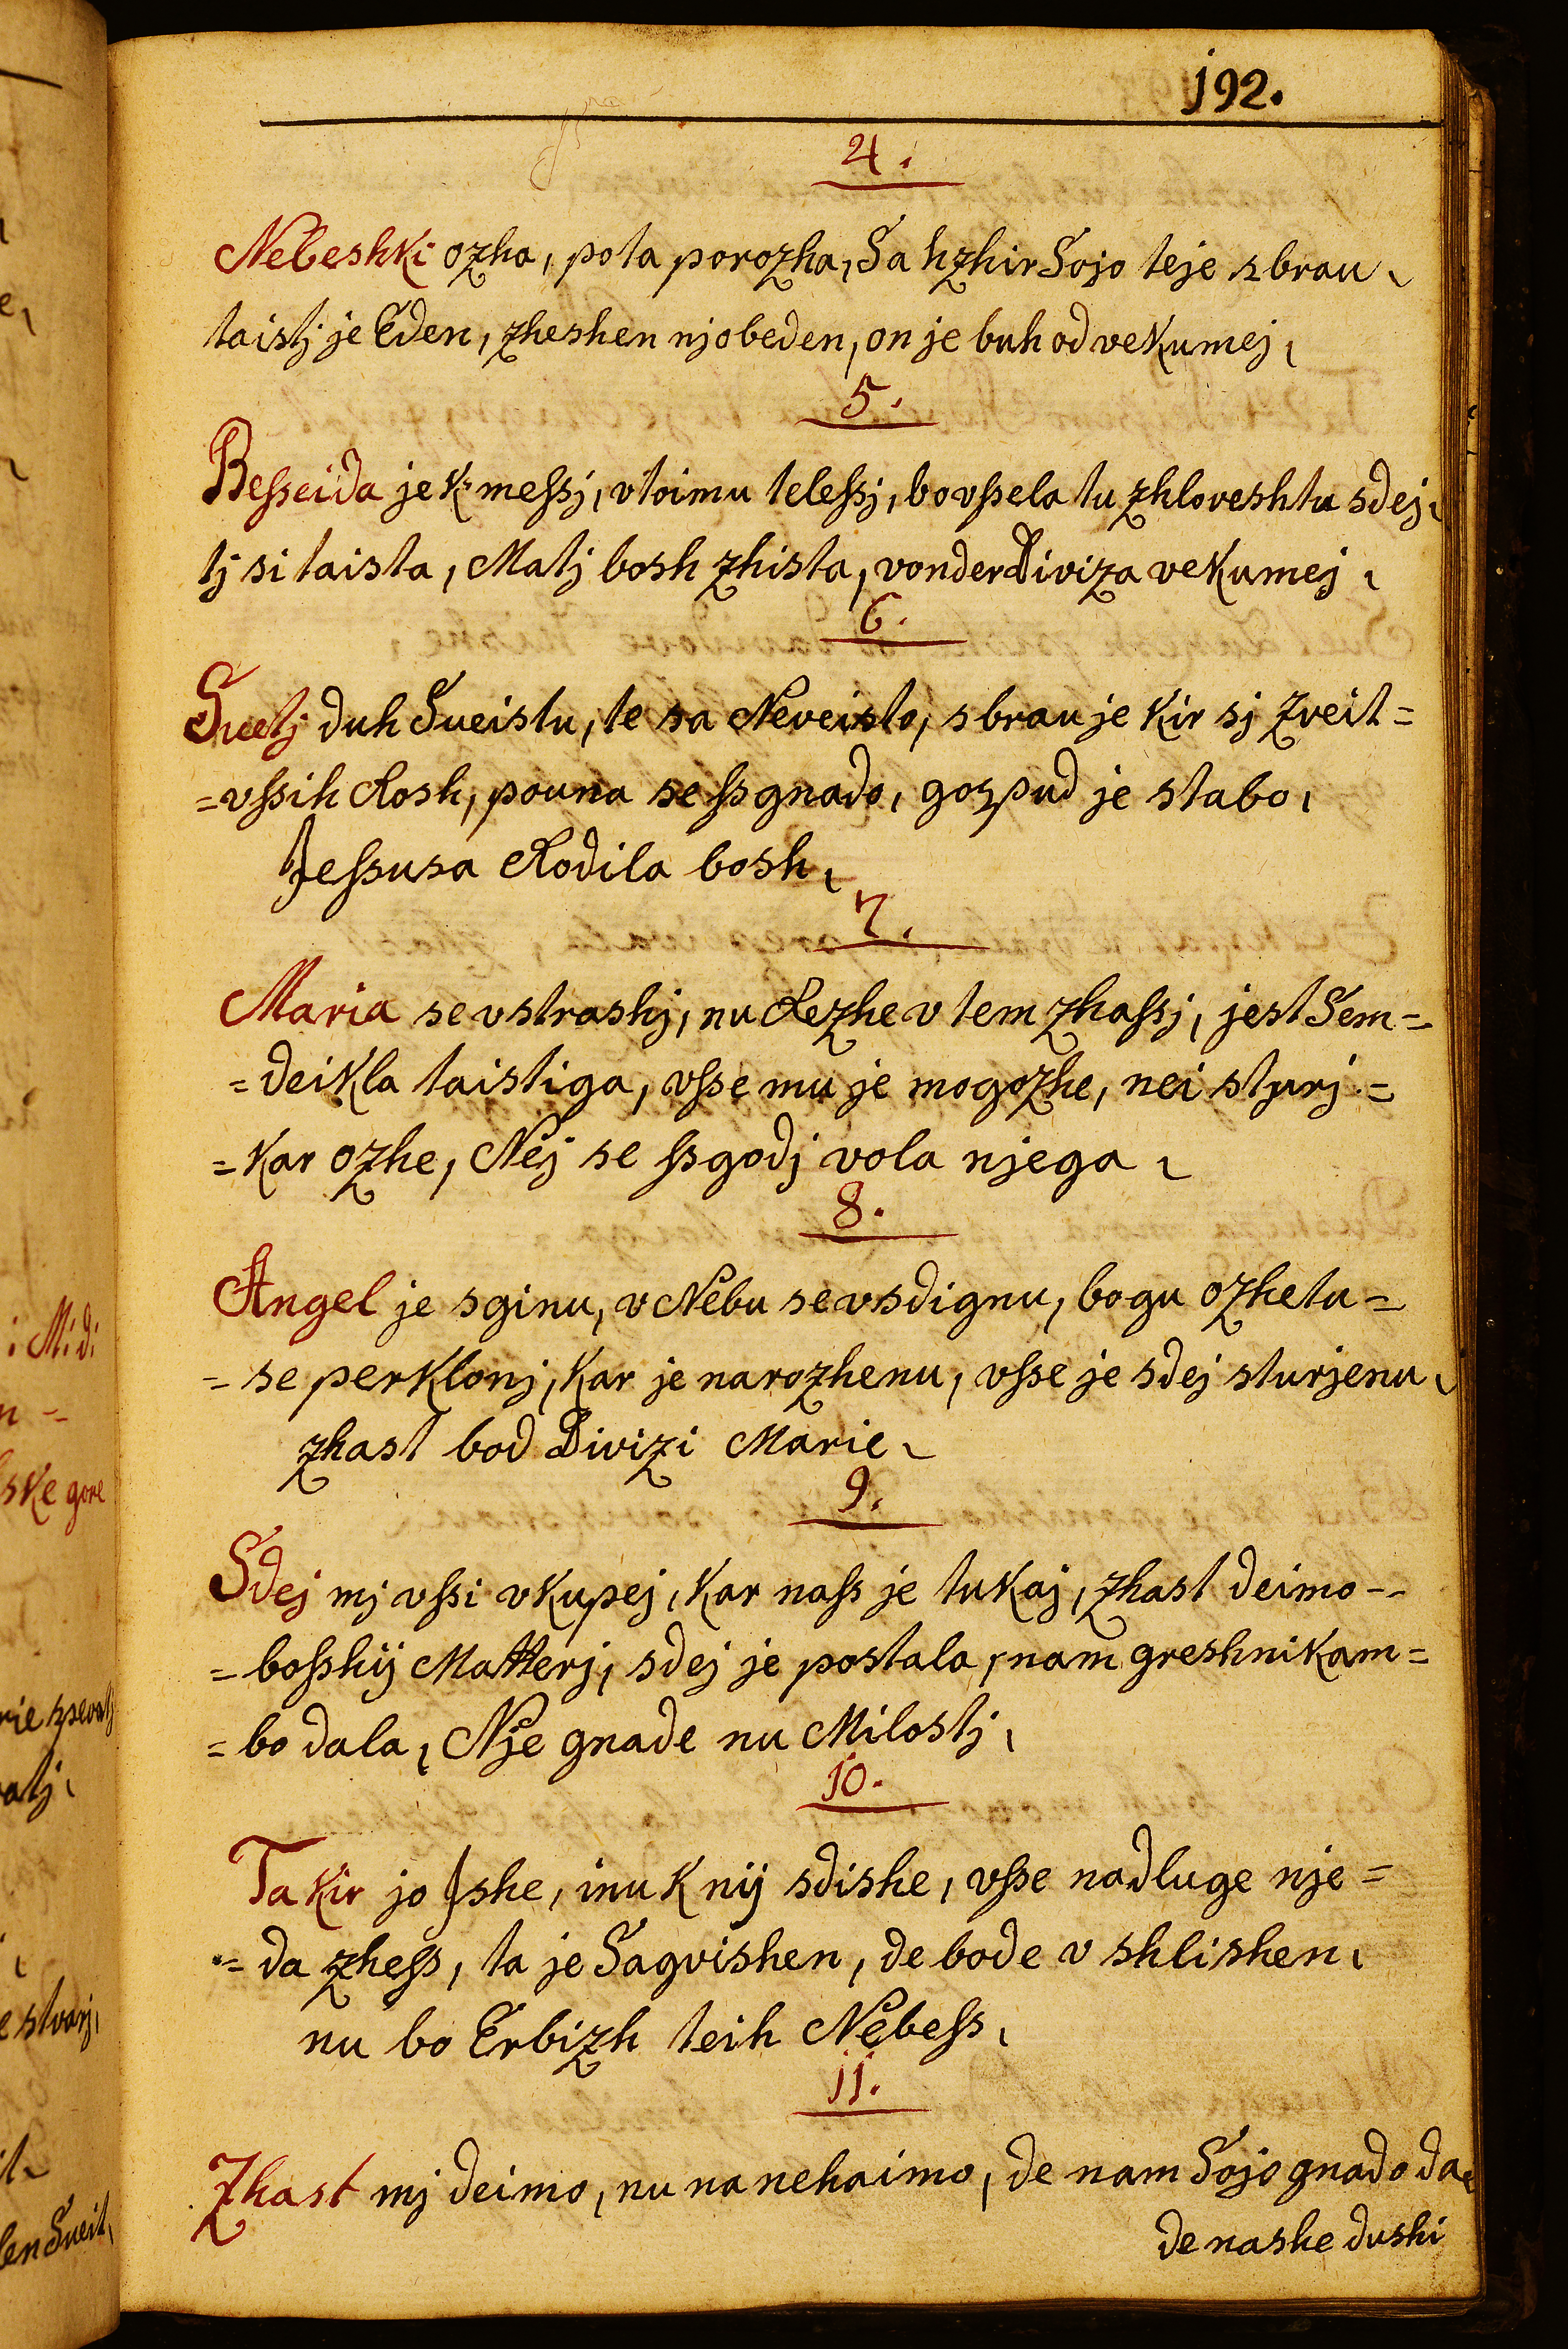 192.
4.
Nebeshki ozha, pota porozha, Sa hzhir Sojo teje sbrau,
taistj je Eden, zheshen njobeden, on je buh od vekumej,
5.
Beſseida je k' meſsj, vtoimu teleſsj, bo vſsela tu zhloveshtu sdej,
tj si taista, Matj bosh zhista, vonder Diviza vekumej,
6.
Suetj duh Sueistu, te sa Neveisto, sbrau je kir sj zveit=
=vſsih Rosh, pouna se ſsgnado, gospud je stabo,
Jeſsusa Rodila bosh,
7.
Maria se vstrashj, nu Rezhe v tem zhaſsj, jest Sem=
=deikla taistiga, vſse mu je mogozhe, nei sturj=
=kar ozhe, Nej se ſsgodj vola njega,
8.
Angel je sginu, v Nebu se vsdignu, bogu ozhetu=
=se perklonj, kar je narozhenu, vſse je sdej sturjenu,
zhast bod Divizi Marie,
9.
Sdej mj vſsi vkupej, kar naſs je tukaj, zhast deimo=
=boſshij Matterj, sdej je postala, nam greshnikam=
=bo dala, Nje gnade nu Milostj,
10.
Ta kir jo Jshe, inu k nij sdishe, vſse nadluge nje=
=da zheſs, ta je Sagvishen, de bode v shlishen,
nu bo Erbizh teih Nebeſs,
11.
Zhast mj deimo, nu na nehaimo, de nam Sojo gnado da,
de nashe dushi
i M: di
ske gore